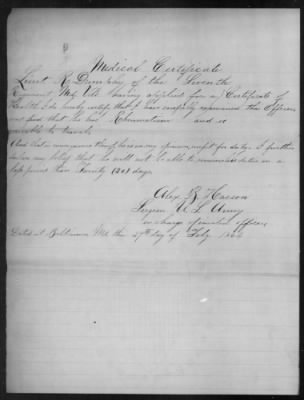 Medical Certificate
Lieut R. Dunkley of the Seventh
Regiment Md Vols having applied for a Certificate of
Health I do hereby certify that I have carefully examined this Officer
and find that he has Rheumatism and is
unable to travel.
And that in consequence thereof he is in my opinion unfit for duty. I further
declare my belief that he will not be able to resume his duties in a
less period than Twenty (20) days.
Alex B. Hasson
Surgeon U. S. Army
in charge of
Dated at Baltimore Md this 27th day of Feby